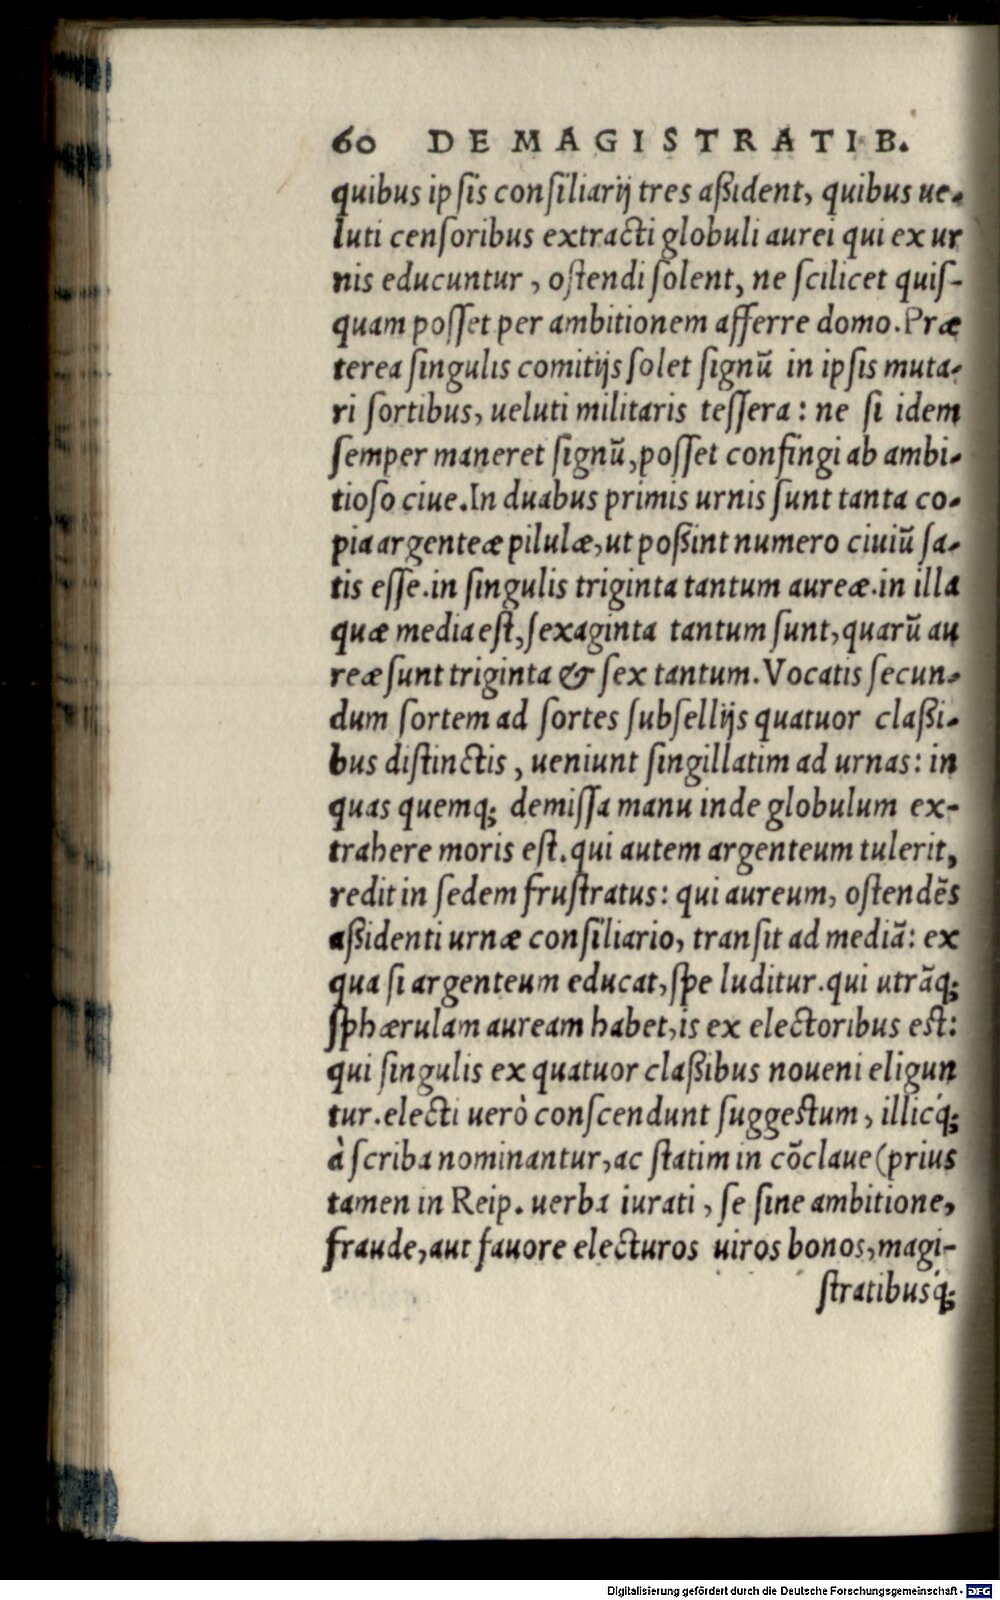 60 DE MAGISTRATIB.
quibus ipſis conſiliarij tres aßident, quibus ue-
luti cenſoribus extracti globuli aurei qui ex ur
nis educuntur, oſtendi ſolent, ne ſcilicet quiſ-
quam poſſet per ambitionem afferre domo. Præ
terea ſingulis comitijs ſolet ſignū in ipſis muta-
ri ſortibus, ueluti militaris teſſera: ne ſi idem
ſemper maneret ſignū, poſſet confingi ab ambi-
tioſo ciue. In duabus primis urnis ſunt tanta co-
pia argenteæ pilulæ, ut poßint numero ciuiū ſa-
tis eſſe. in ſingulis triginta tantum aureæ. in illa
quæ media eſt, ſexaginta tantum ſunt, quarū au
reæ ſunt triginta & ſex tantum. Vocatis ſecun-
dum ſortem ad ſortes ſubſellijs quatuor claßi-
bus diſtinctis, ueniunt ſingillatim ad urnas: in
quas quemq; demiſſa manu inde globulum ex-
trahere moris eſt. qui autem argenteum tulerit,
redit in ſedem fruſtratus: qui aureum, oſtendēs
aßidenti urnæ conſiliario, tranſit ad mediā: ex
qua ſi argenteum educat, ſpe luditur. qui utrāq;
ſphærulam auream habet, is ex electoribus eſt:
qui ſingulis ex quatuor claßibus noueni eligun
tur. electi uerò conſcendunt ſuggeſtum, illicq́;
à ſcriba nominantur, ac ſtatim in cōclaue (prius
tamen in Reip. uerba iurati, ſe ſine ambitione,
fraude, aut fauore electuros uiros bonos, magi-
ſtratibusq́;
Digitalisierung gefördert durch die Deutsche Forschungsgemeinschaft - DFG